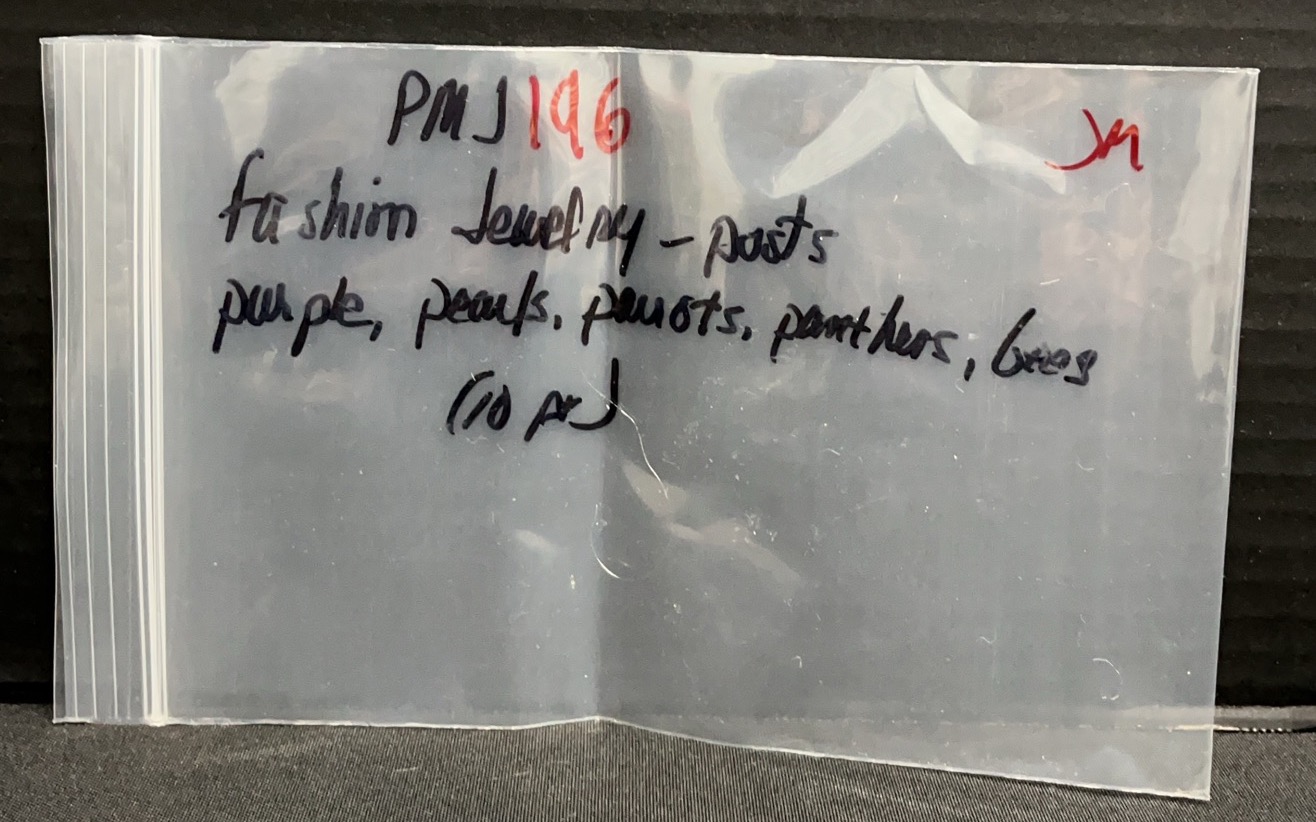 PMJ 196
JM
fashion Jewelry - posts
purple, pearls, parrots, panthers, bees
(10 pr)